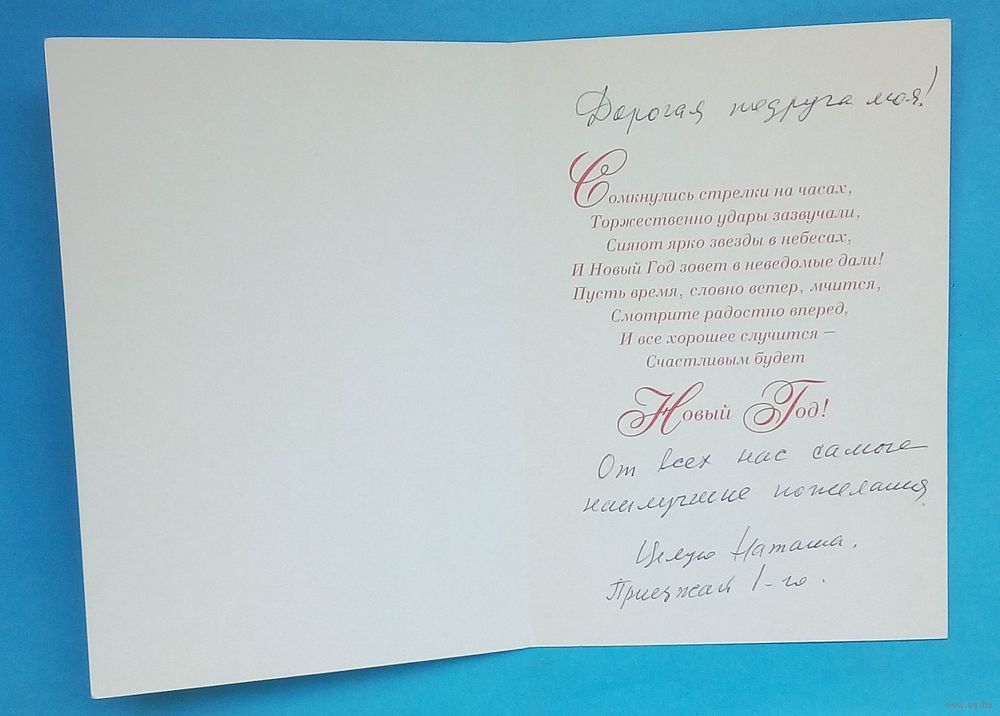 Дорогая подруга моя!
Сомкнулись стрелки на часах,
Торжественно удары зазвучали,
Сияют ярко звезды в небесах,
И Новый Год зовет в неведомые дали!
Пусть время, словно ветер, мчится,
Смотрите радостно вперед,
И все хорошее случится –
Счастливым будет
Новый Год!
От всех нас самые
наилучшие пожелания.
Целую Наташа.
Приезжай 1-го.